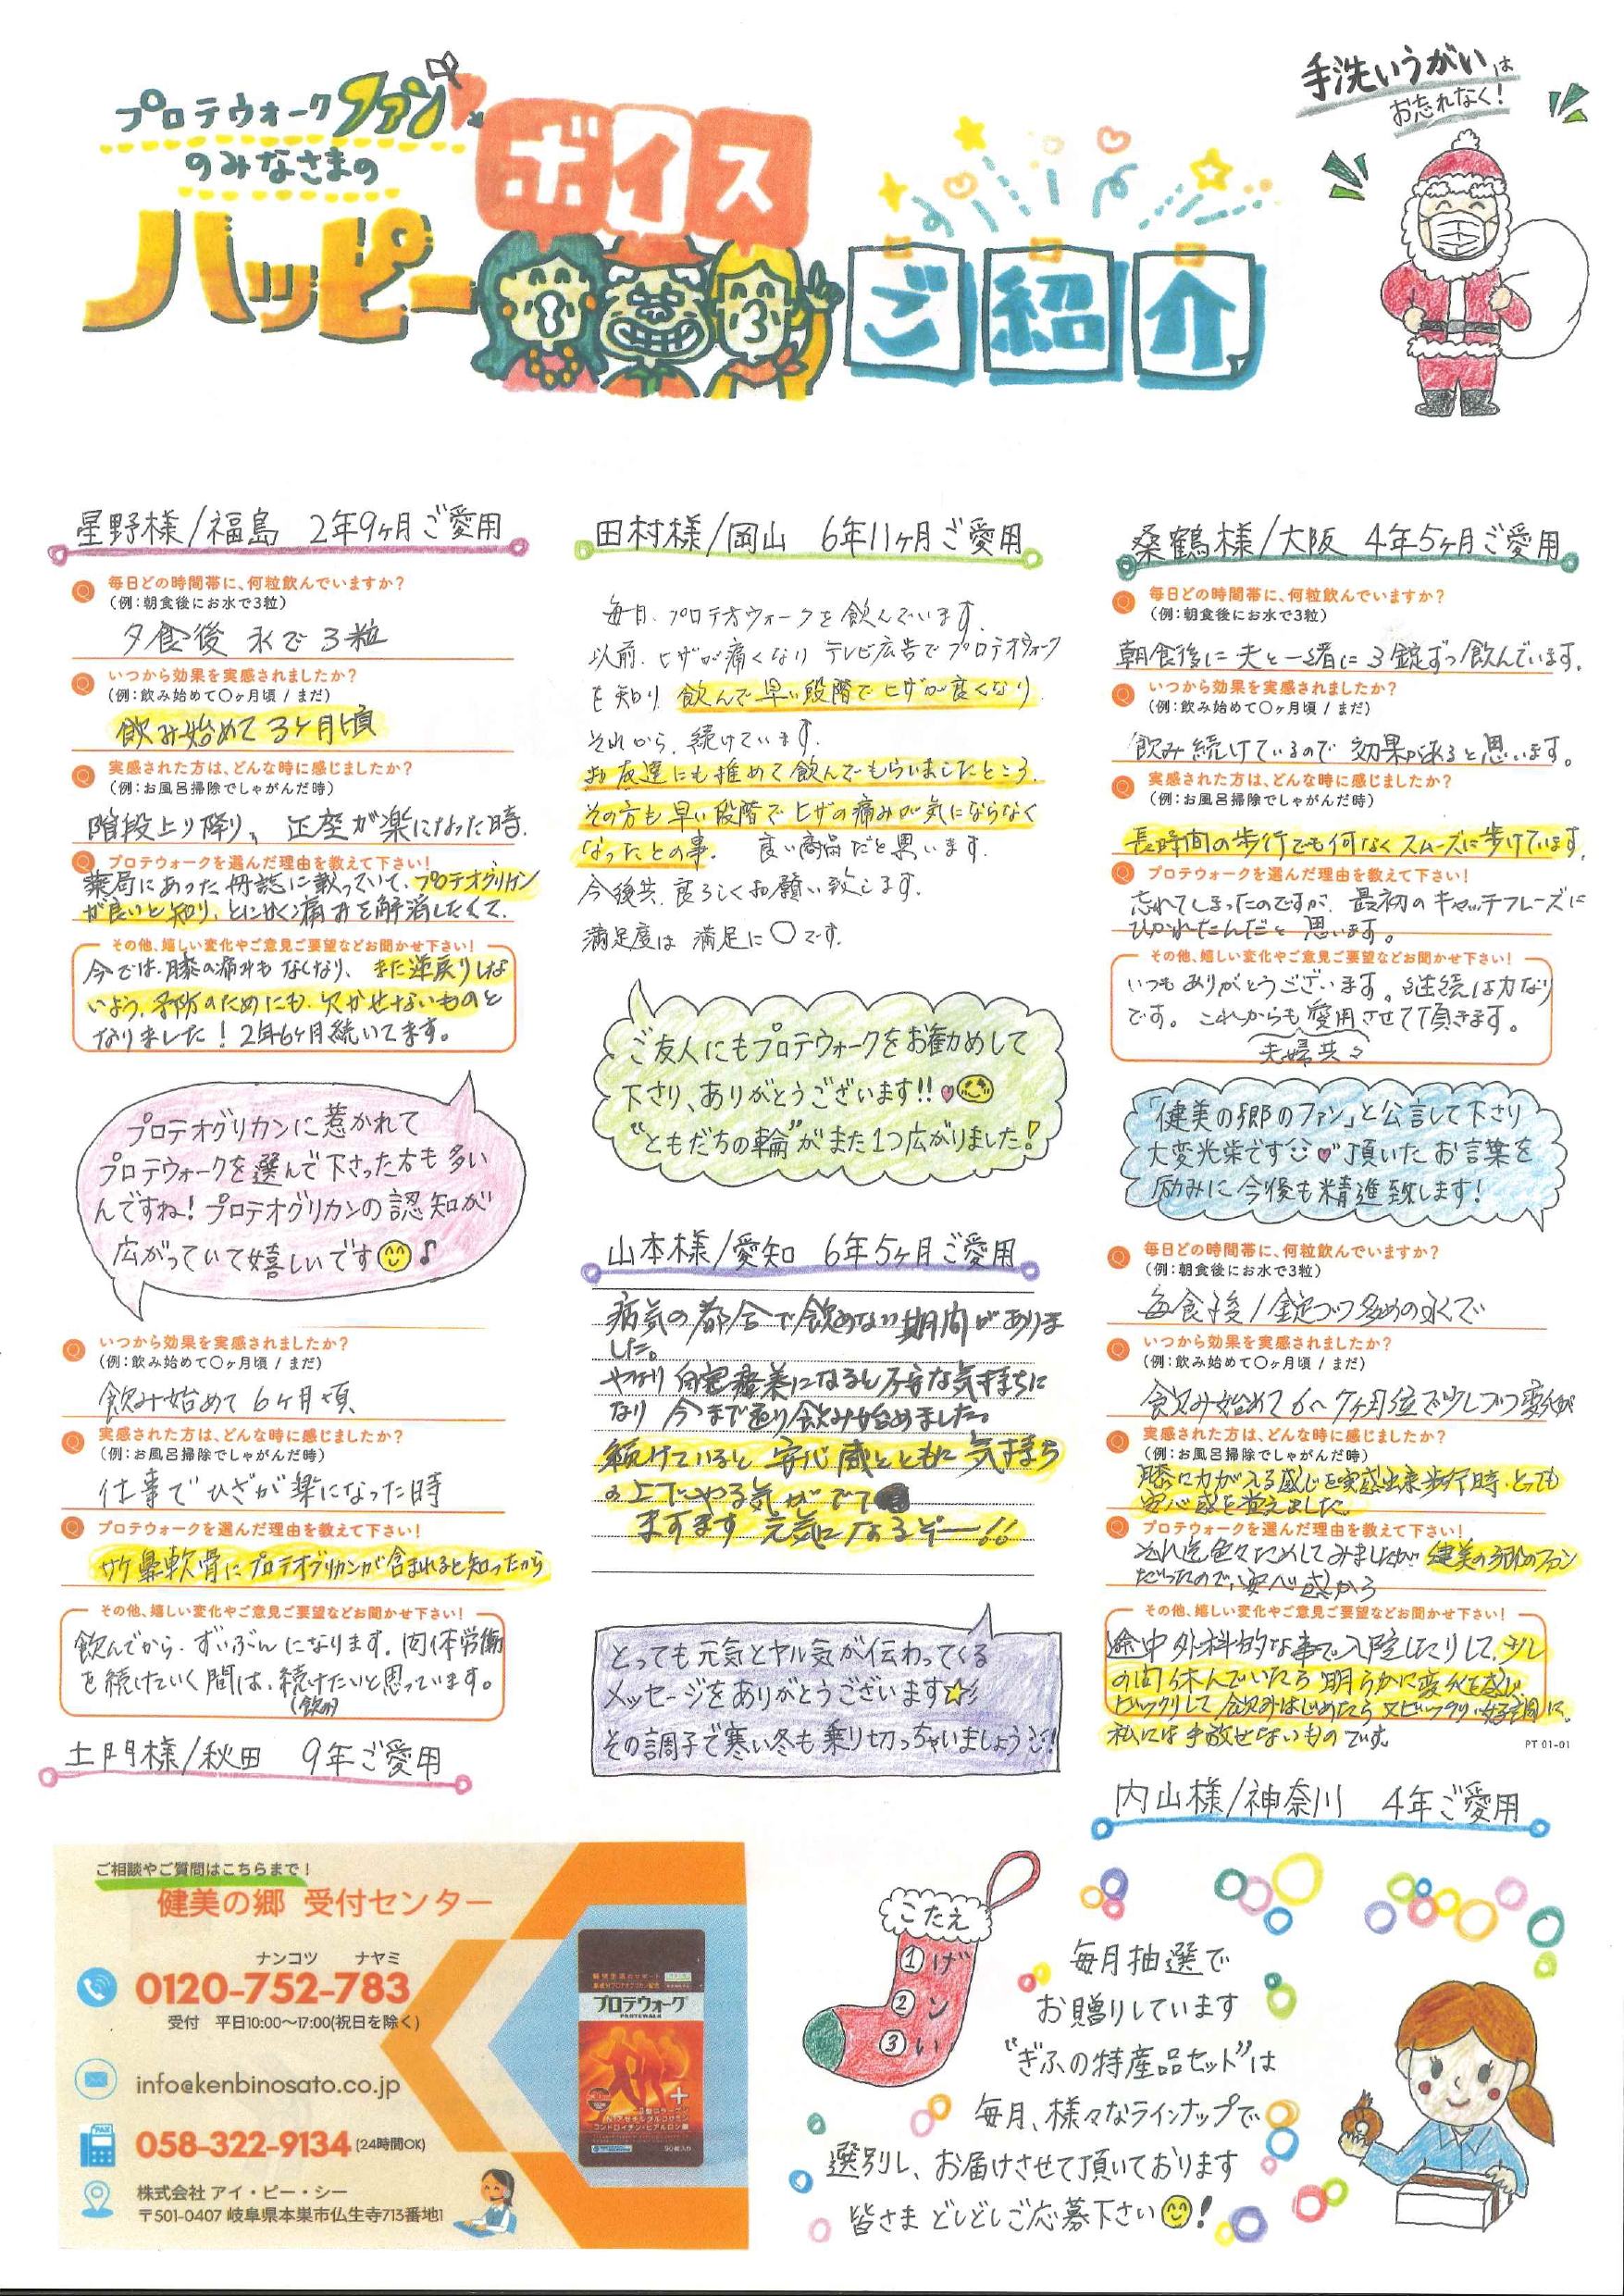 プロテウォークファン
のみなさまの
ハッピー
ボイス
ご紹介
手洗いうがいは
お忘れなく!
星野様/福島 2年9ヶ月ご愛用
Q 毎日どの時間帯に、何粒飲んでいますか?
(例:朝食後にお水で3粒)
夕食後 水で 3粒
Q いつから効果を実感されましたか?
(例:飲み始めて〇ヶ月頃 / まだ)
飲み始めて 3ヶ月頃
Q 実感された方は、どんな時に感じましたか?
(例:お風呂掃除でしゃがんだ時)
階段上り降り、正座が楽になった時.
Q プロテウォークを選んだ理由を教えて下さい!
薬局にあった冊誌に載っていて、プロテオグリカン
が良いと知り、とにかく痛みを解消したくて.
その他、嬉しい変化やご意見ご要望などお聞かせ下さい!
今では、膝の痛みもなくなり、また逆戻りしな
いよう、予防のためにも、欠かせないものと
なりました! 2年6ヶ月続いてます。
プロテオグリカンに惹かれて
プロテウォークを選んで下さった方も多い
んですね!プロテオグリカンの認知が
広がっていて嬉しいです♪
Q いつから効果を実感されましたか?
(例:飲み始めて〇ヶ月頃 / まだ)
飲み始めて 6ヶ月頃
Q 実感された方は、どんな時に感じましたか?
(例:お風呂掃除でしゃがんだ時)
仕事で ひざが楽になった時
Q プロテウォークを選んだ理由を教えて下さい!
サケ鼻軟骨にプロテオグリカンが含まれると知ったから
その他、嬉しい変化やご意見ご要望などお聞かせ下さい!
飲んでから、ずいぶんになります。肉体労働
を続けていく間は、続けたいと思っています。
(飲み)
土門様/秋田 9年ご愛用
田村様/岡山 6年11ヶ月ご愛用
毎月、プロテオウォークを飲んでいます.
以前、ヒザが痛くなり テレビ広告でプロテオウォーク
を知り、飲んで早い段階でヒザが良くなり
それから、続けています.
お友達にも推めて飲んでもらいましたところ、
その方も早い段階でヒザの痛みが気にならなく
なったとの事. 良い商品だと思います.
今後共、宜ろしくお願い致します.
満足度は 満足に〇です.
ご友人にもプロテウォークをお勧めして
下さり、ありがとうございます!!♥
"ともだちの輪"がまた1つ広がりました!
山本様/愛知 6年5ヶ月ご愛用
病気の都合で飲めない期間がありま
した。
やはり になると不安な気持ちに
なり 今まで通り飲み始めました。
続けていると 安心感とともに 気持ち
の上でやる気がでて
ますます 元気になるぞー!!
とっても元気とヤル気が伝わってくる
メッセージをありがとうございます☆彡
その調子で寒い冬も乗り切っちゃいましょう!
桑鶴様/大阪 4年5ヶ月ご愛用
Q 毎日どの時間帯に、何粒飲んでいますか?
(例:朝食後にお水で3粒)
朝食後に 夫と一緒に 3錠ずつ飲んでいます.
Q いつから効果を実感されましたか?
(例:飲み始めて〇ヶ月頃 / まだ)
飲み続けているので 効果があると思います。
Q 実感された方は、どんな時に感じましたか?
(例:お風呂掃除でしゃがんだ時)
長時間の歩行でも何なくスムーズに歩けています.
Q プロテウォークを選んだ理由を教えて下さい!
忘れてしまったのですが、最初のキャッチフレーズに
ひかれたんだと 思います。
その他、嬉しい変化やご意見ご要望などお聞かせ下さい!
いつもありがとうございます。継続は力なり
です。これからも愛用させて頂きます。
夫婦共々
「健美の郷のファン」と公言して下さり
大変光栄です♥頂いたお言葉を
励みに今後も精進致します!
Q 毎日どの時間帯に、何粒飲んでいますか?
(例:朝食後にお水で3粒)
毎食後1錠づつ多めの水で
Q いつから効果を実感されましたか?
(例:飲み始めて〇ヶ月頃 / まだ)
飲み始めて6〜7ヶ月位で少しづつ変化が
Q 実感された方は、どんな時に感じましたか?
(例:お風呂掃除でしゃがんだ時)
膝に力が入る感じを実感出来歩行時、とても
安心感を覚えました
Q プロテウォークを選んだ理由を教えて下さい!
それ迄色々ためしてみましたが 健美の郷のファン
だったので、安心感から
その他、嬉しい変化やご意見ご要望などお聞かせ下さい!
途中外科的な事で入院したりして、少し
の間休んでいたら 明らかに変化を感じ
ビックリして、飲みはじめたら 又ビックリ 好調に.
私には手放せないものです。
PT 01-01
内山様/神奈川 4年ご愛用
ご相談やご質問はこちらまで!
健美の郷 受付センター
ナンコツ ナヤミ
0120-752-783
受付 平日10:00〜17:00(祝日を除く)
info@kenbinosato.co.jp
FAX
058-322-9134 (24時間OK)
株式会社 アイ・ピー・シー
〒501-0407 岐阜県本巣市仏生寺713番地1
プロテウォーク
PROTEWALK
こたえ
① げ
② ン
③ い
毎月抽選で
お贈りしています
"ぎふの特産品セット"は
毎月、様々なラインナップで
選別し、お届けさせて頂いております
皆さま どしどしご応募下さい!